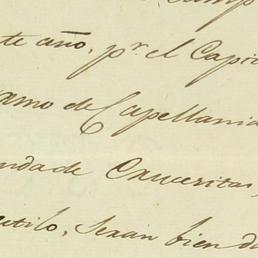 te año, pr. el Capi
amo de Capellania
nda de Cruceritas,
utilo, seran bien d